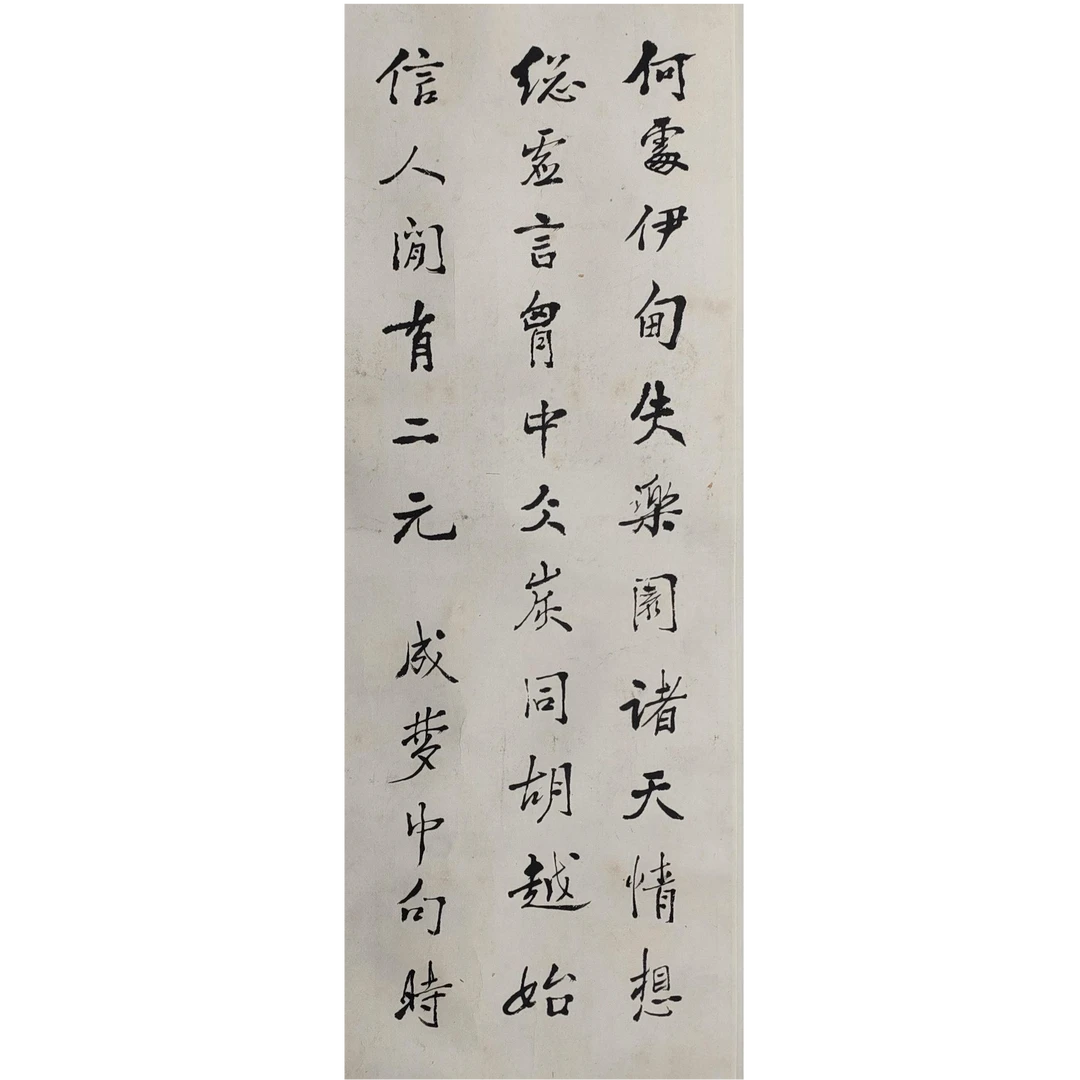 何處伊甸失樂園諸天情想
總虛言胷中仌炭同胡越始
信人間有二元 成夢中句時